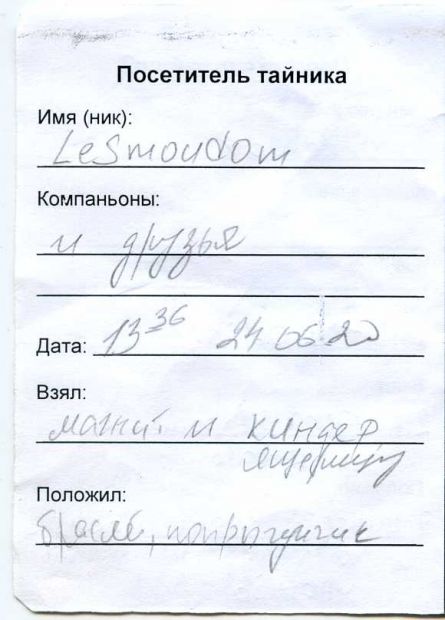 Посетитель тайника
Имя (ник):
Lesmoudom
Компаньоны:
и друзья
Дата: 13 36 24 06 20
Взял:
магнит и киндер
ящерицу
Положил:
брасле, попрыгунчик